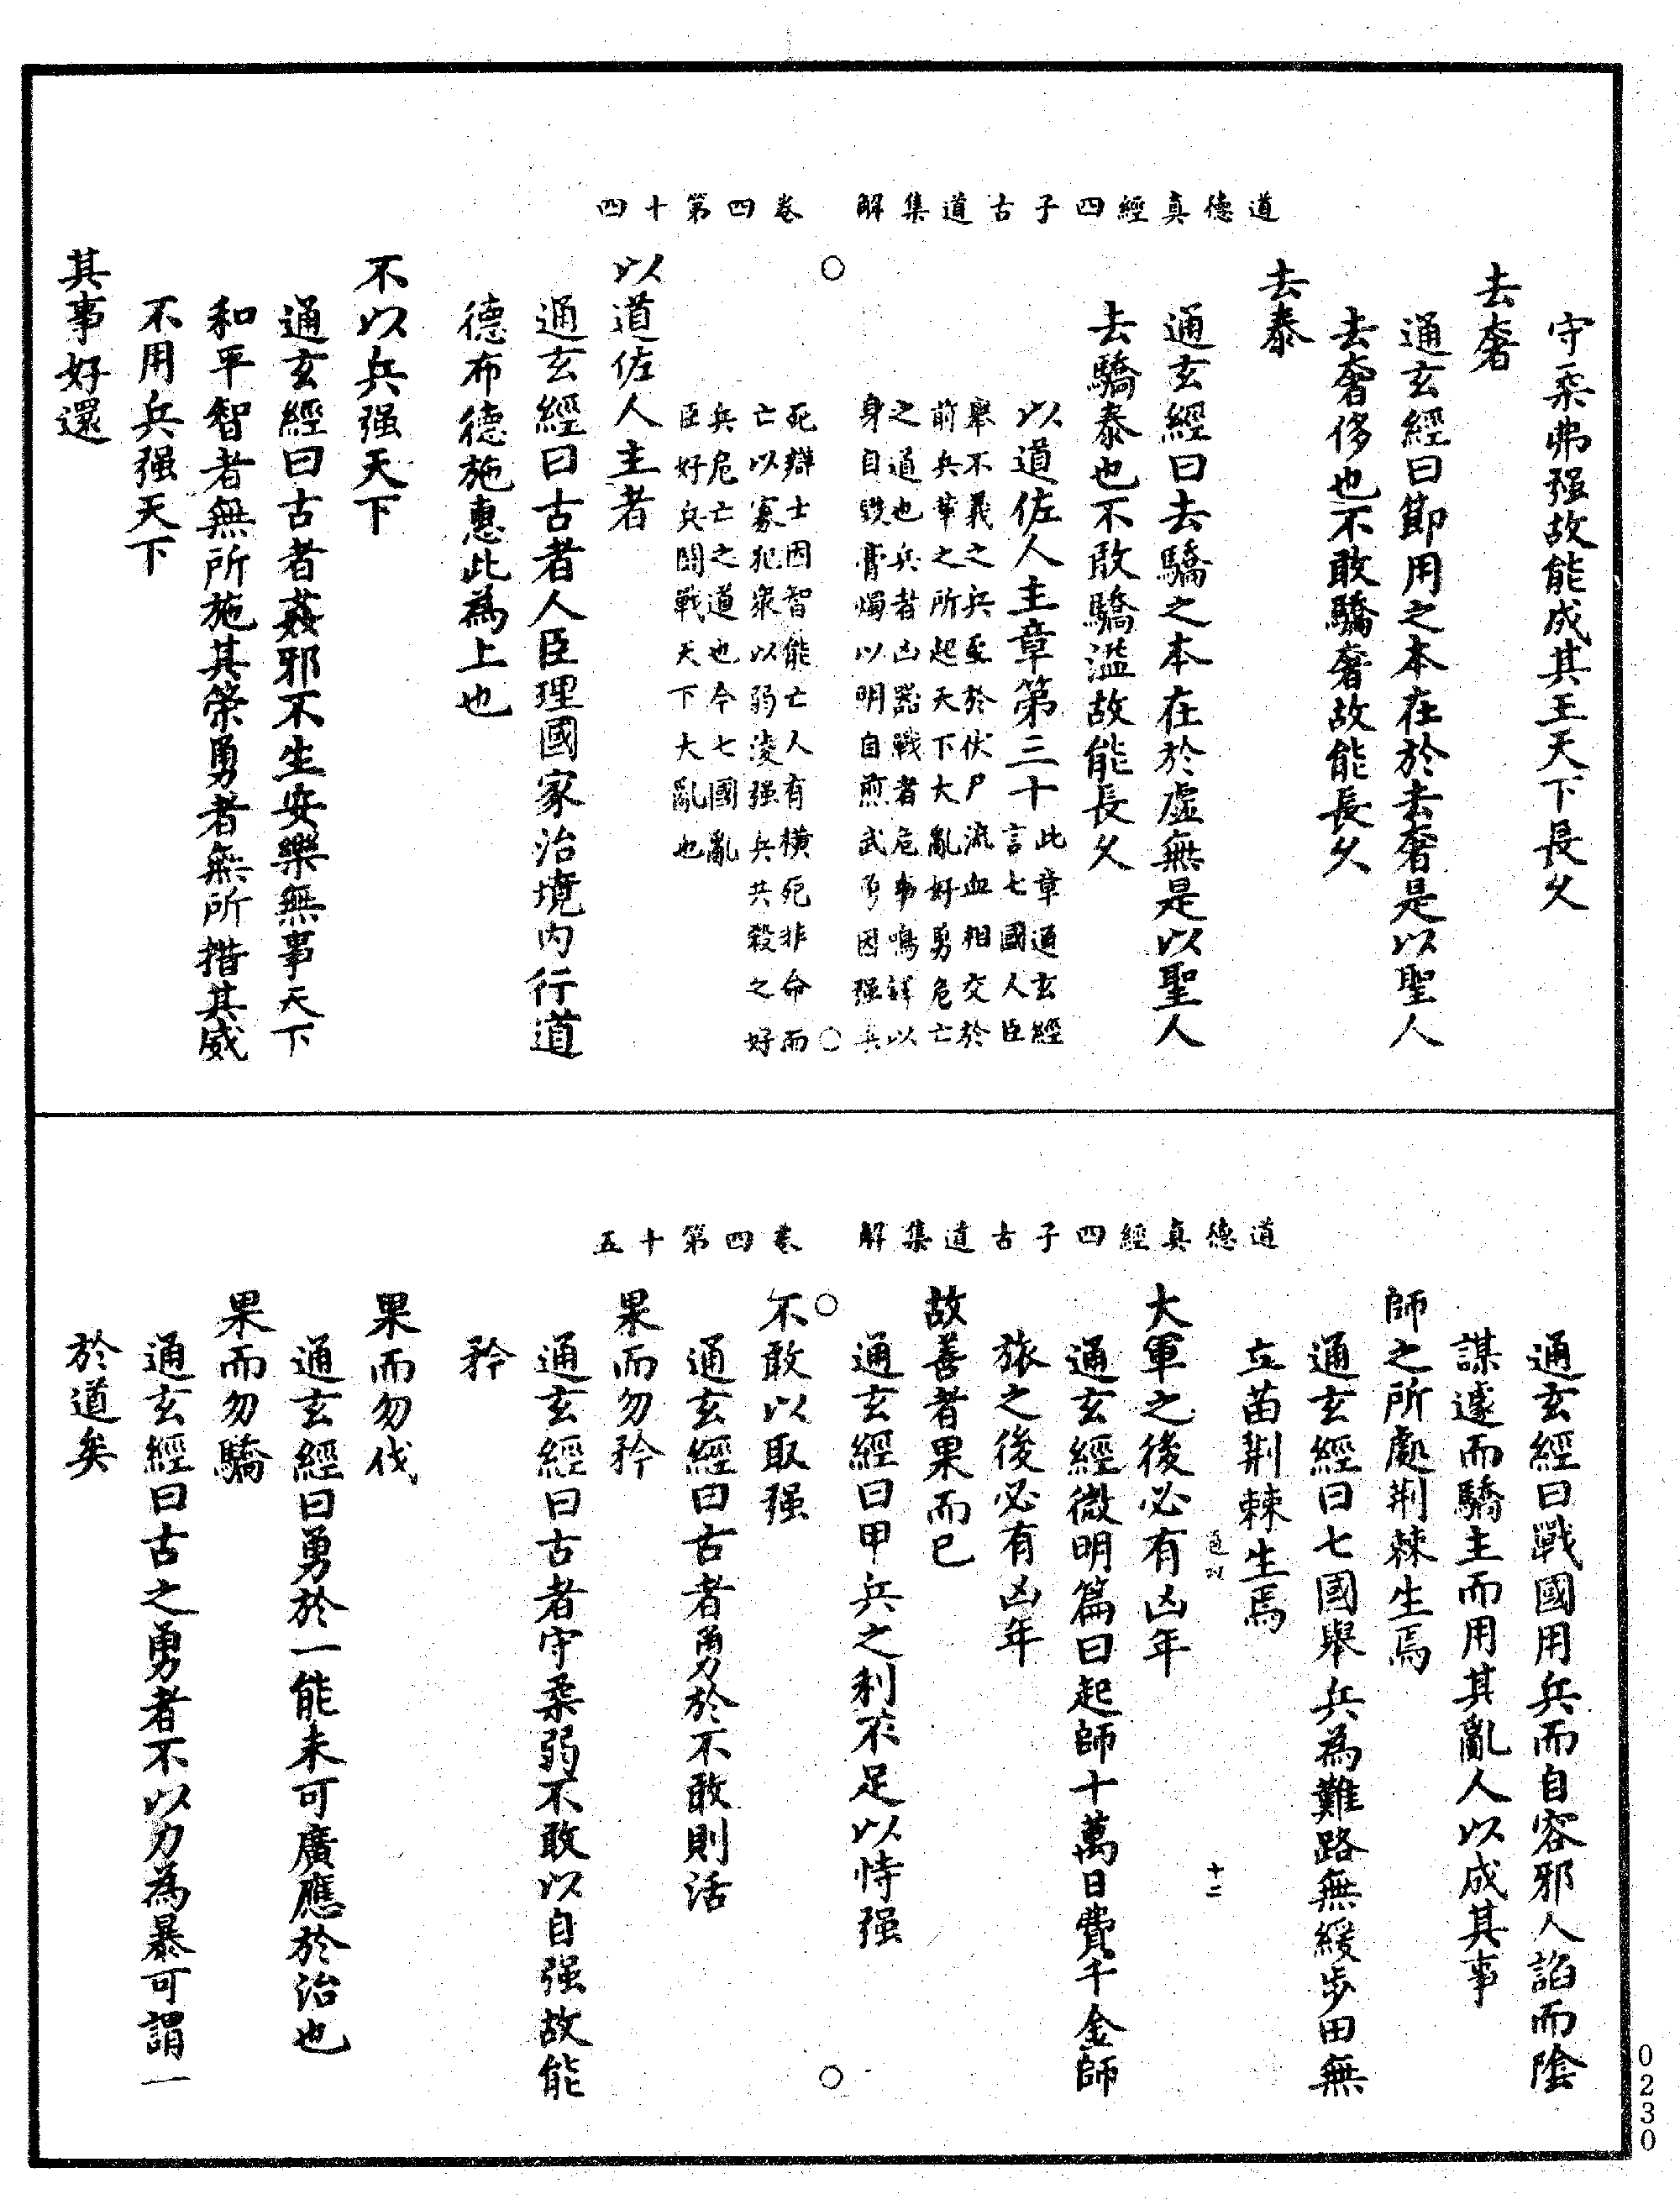 道德真經四子古道集解　卷四第十四
守柔弗强故能成其王天下長久
去奢
通玄經曰節用之本在於去奢是以聖人
去奢侈也不敢驕奢故能長久
去泰
通玄經曰去驕之本在於虛無是以聖人
去驕泰也不敢驕溢故能長久
以道佐人主章第三十
此章通玄經
言七國人臣
舉不義之兵至於伏尸流血相交於
前兵革之所起天下大亂好勇危亡
之道也兵者凶器戰者危事鳴鐸以
身自毀膏燭以明自煎武勇因强兵
○
○
死辯士因智能亡人有橫死非命而
亡以寡犯衆以弱凌强兵共殺之好
兵危亡之道也今七國亂
臣好兵鬪戰天下大亂也
以道佐人主者
通玄經曰古者人臣理國家治境內行道
德布德施惠此為上也
不以兵强天下
通玄經曰古者姦邪不生安樂無事天下
和平智者無所施其榮勇者無所措其威
不用兵强天下
其事好還
道德真經四子古道集解　卷四第十五
通玄經曰戰國用兵而自容邪人諂而陰
謀遽而驕主而用其亂人以成其事
師之所處荆棘生焉
通玄經曰七國舉兵為難路無緩步田無
立苗荆棘生焉
十二
大軍之後必有凶年
通玄經微明篇曰起師十萬日費千金師
旅之後必有凶年
故善者果而已
通玄經曰甲兵之利不足以恃强
○
○
不敢以取强
通玄經曰古者勇於不敢則活
果而勿矜
通玄經曰古者守柔弱不敢以自强故能
矜
果而勿伐
通玄經曰勇於一能未可廣應於治也
果而勿驕
通玄經曰古之勇者不以力為暴可謂一
於道矣
0230